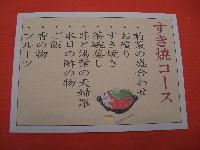 すき焼コース
・前菜の盛合わせ
・お造り
・すき焼き
・茶碗蒸し
・海老と湯葉の天婦羅
・本日の酢の物
・ご飯
・香の物
・フルーツ